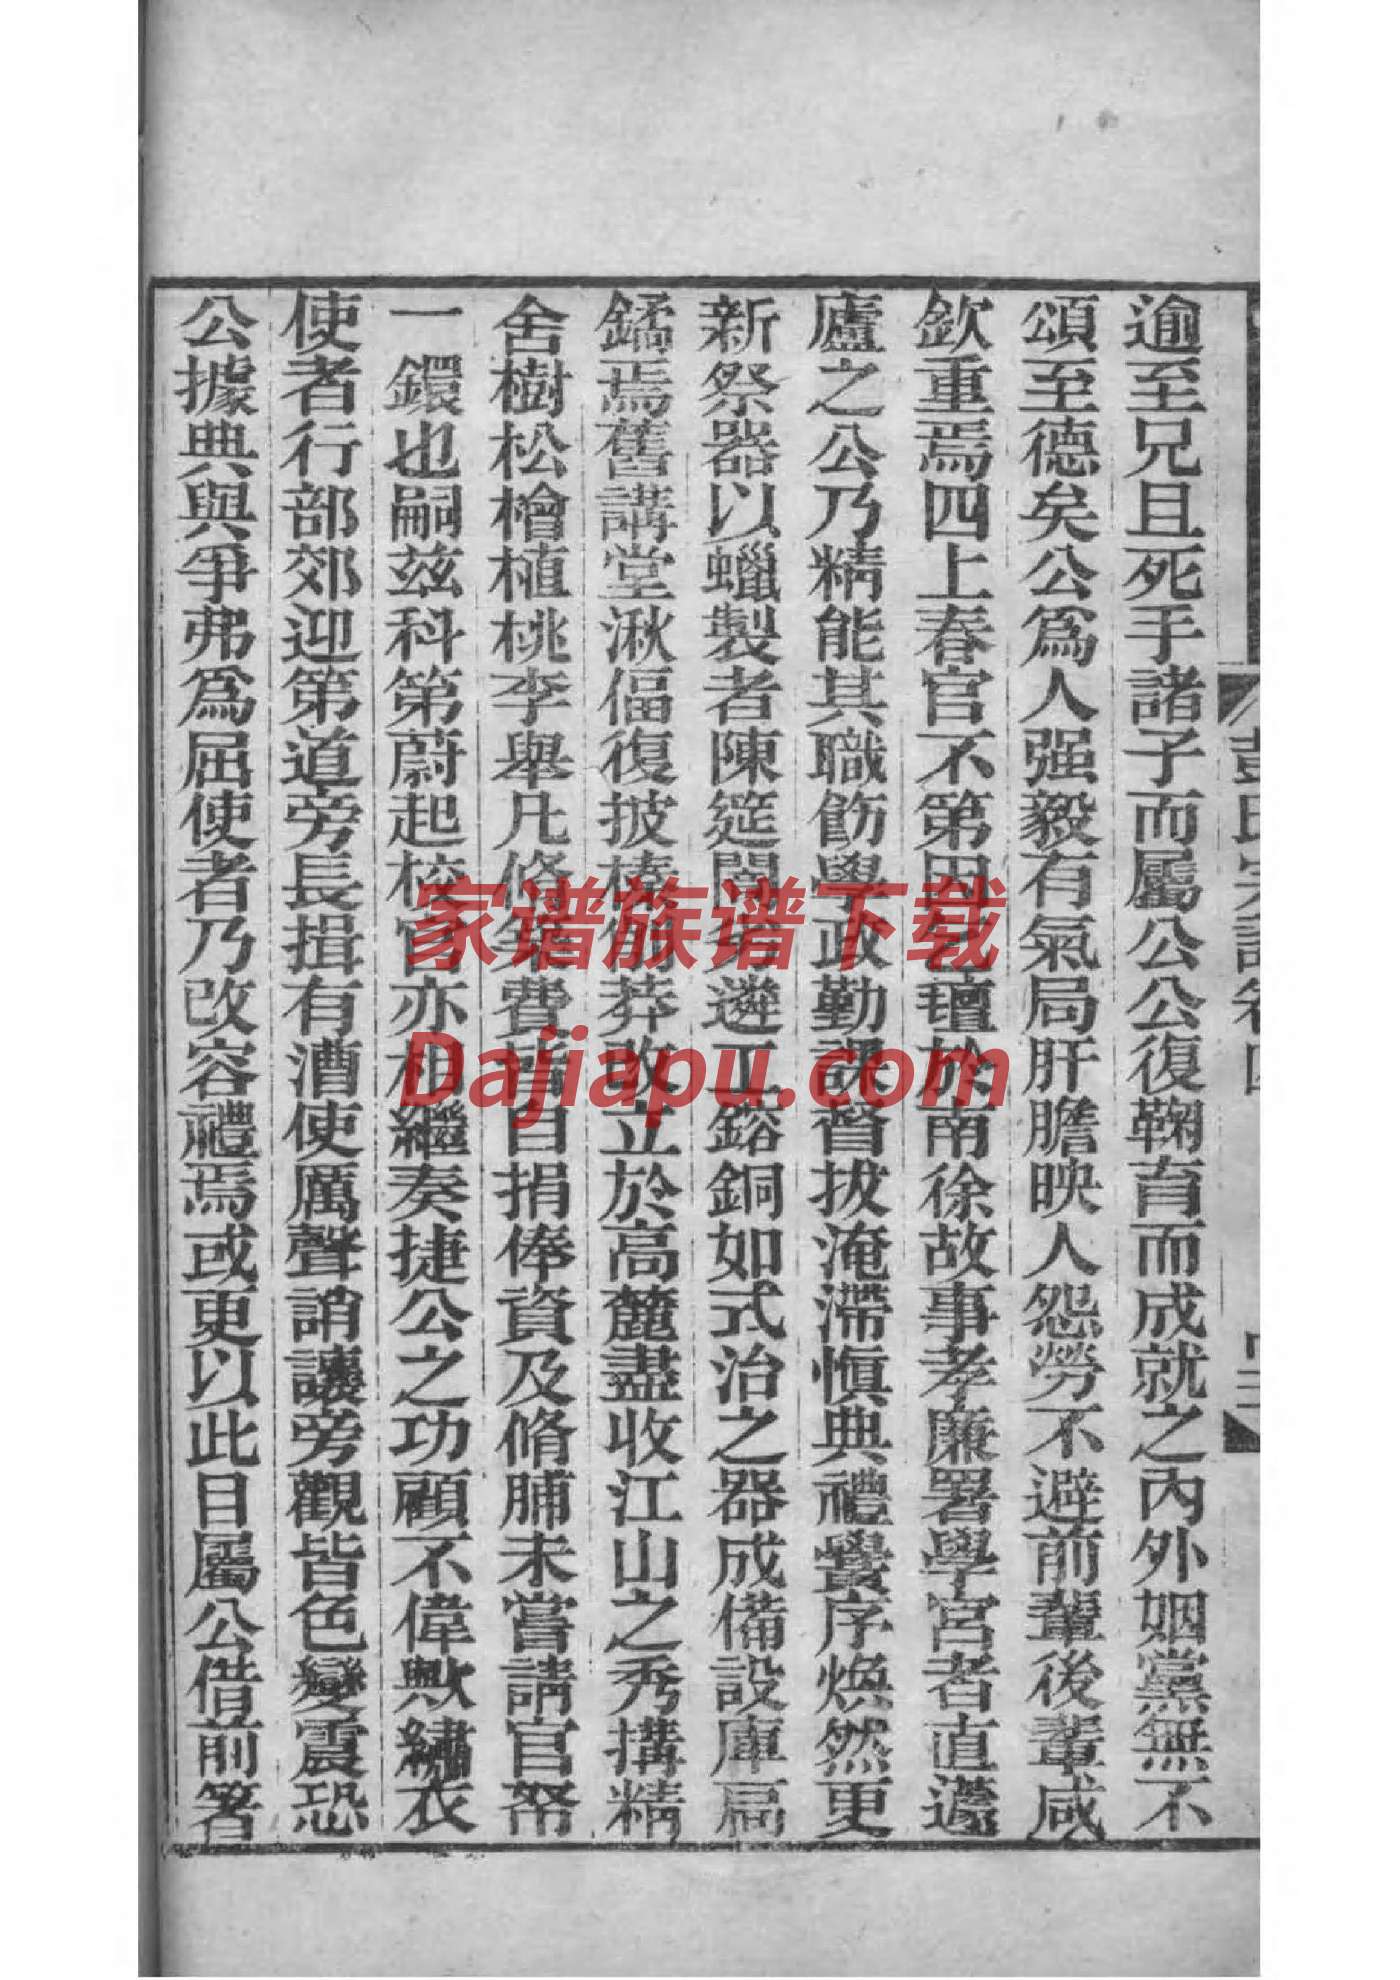 彭氏宗譜卷四
逾至兄且死手諸子而屬公公復鞠育而成就之內外姻黨無不
頌至德矣公爲人强毅有氣局肝膽映人怨勞不避前輩後輩咸
欽重焉四上春官不第田乞壇於南徐故事孝廉署學宮者直蘧
廬之公乃精能其職飭學政勤課督拔淹滯愼典禮黌序煥然更
新祭器以蠟製者陳筵闇劣遴工鎔銅如式治之器成備設庫扃
鐍焉舊講堂湫偪復披榛剪莽改立於高麓盡收江山之秀搆精
舍樹松檜植桃李舉凡修葺費皆自捐俸資及脩脯未嘗請官帑
一鐶也嗣茲科第蔚起校官亦相繼奏捷公之功顧不偉歟繡衣
使者行部郊迎第道旁長揖有漕使厲聲誚讓旁觀皆色變震恐
公據典與爭弗爲屈使者乃改容禮焉或更以此目屬公借前箸
家谱族谱下载
Dajiapu.com